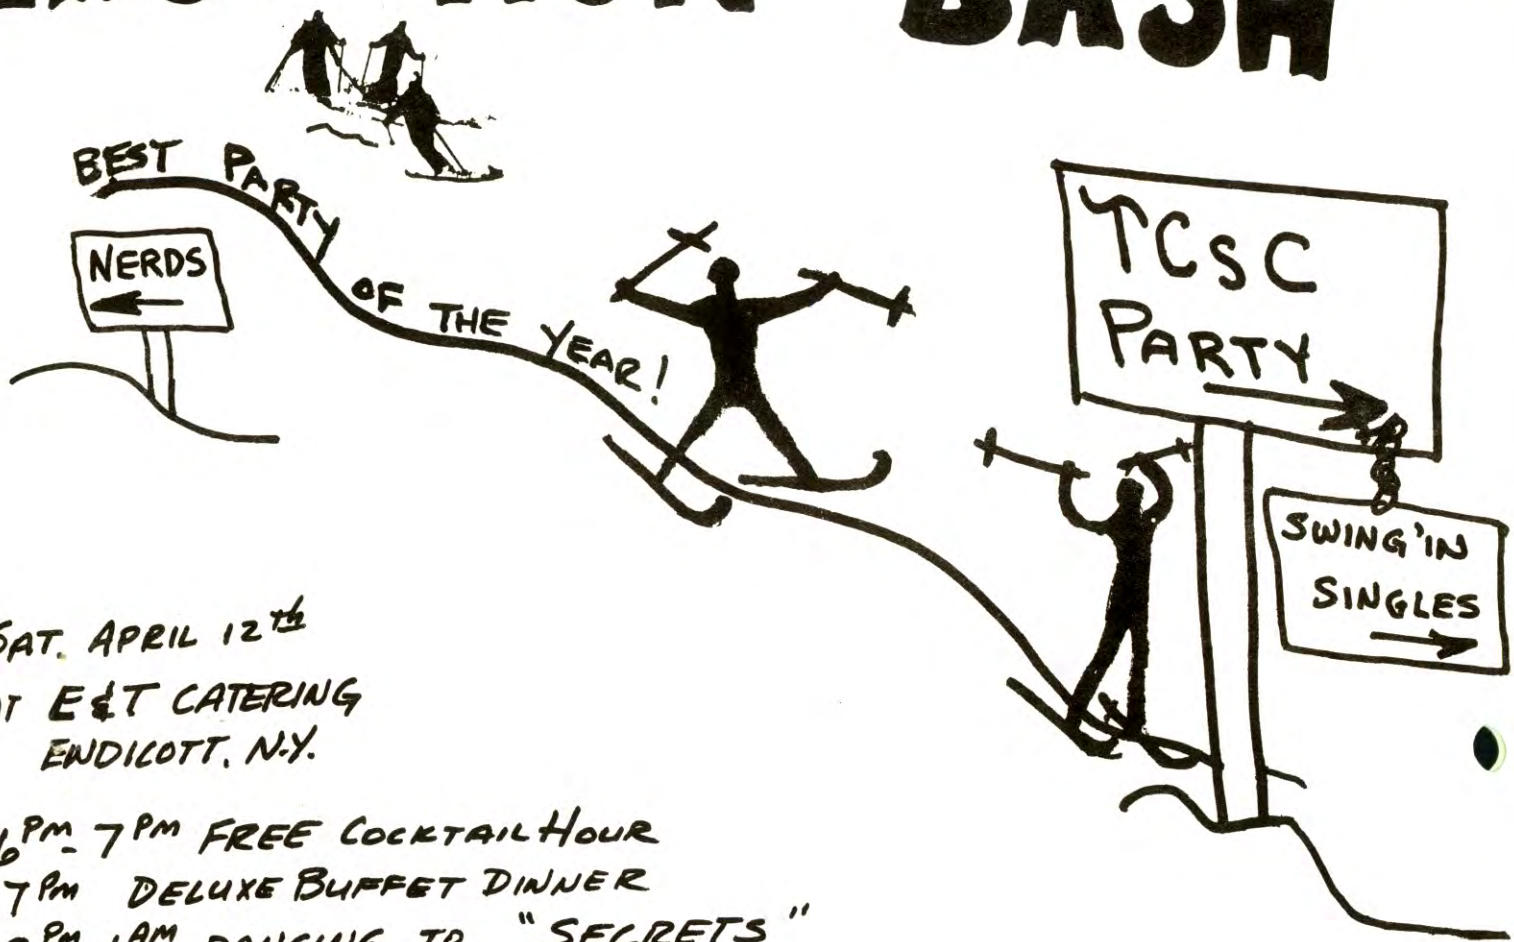 RUN BASH
BEST PARTY OF THE YEAR!
NERDS
TCSC
PARTY
SWING'IN
SINGLES
SAT. APRIL 12th
AT E&T CATERING
ENDICOTT, N.Y.
6PM - 7PM FREE COCKTAIL HOUR
7PM DELUXE BUFFET DINNER
PM 1AM DANCING TO "SECRETS"